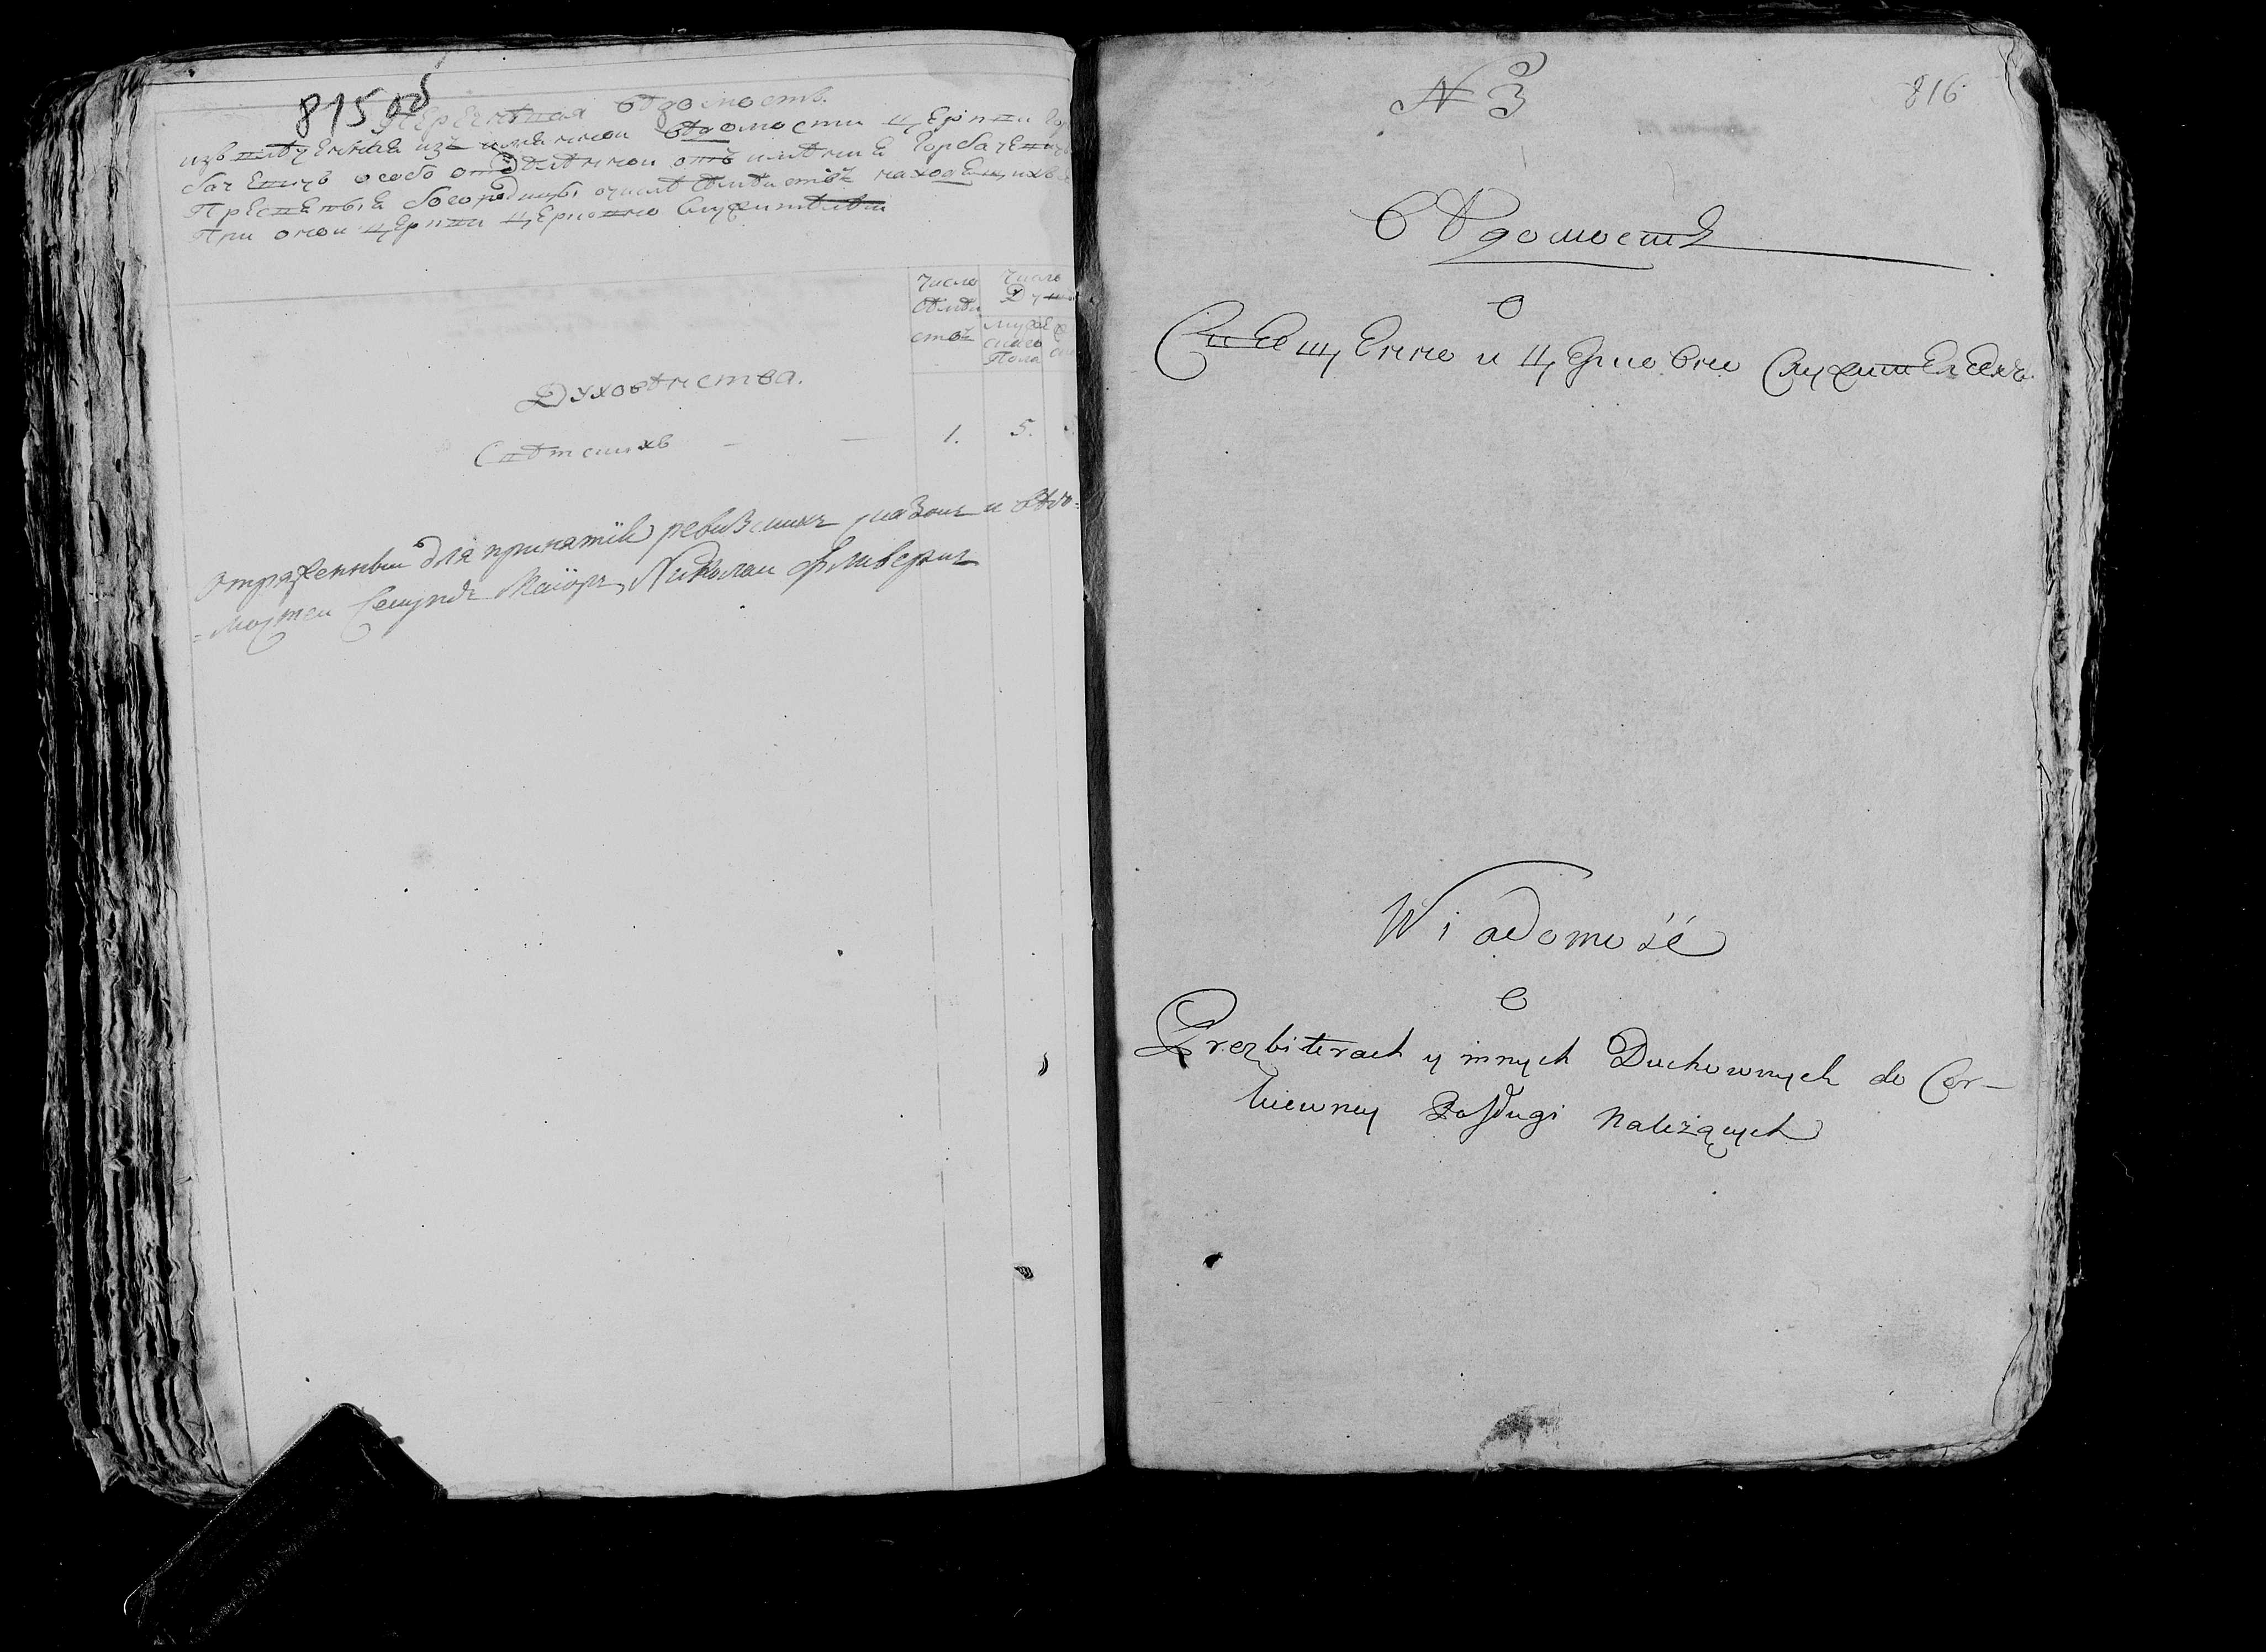 815 об
Перечневая ведомость.
извлеченная изъ имянной ведомости церкви Гор
бачевичъ особо отделенной отъ имения Горбачевич
Пресвятыя богородицы о числе семействъ находящихся
При оной церкви церковно служителей
Число
семей
ствъ
Число
Душ
мужe
скаго
Пола
Духовенства.
Светскихъ — — 1. 5.
Отряженный для принятія ревизскихъ сказокъ и ведо=
=мостей Секундъ Маіоръ Николай
816
N 3
Вѣдомость
о
Священно и Церковно Служителяхъ
Wiadomość
o
Prezbiterach y innych Duchownych do Cer–
kiewney Posługi Należących